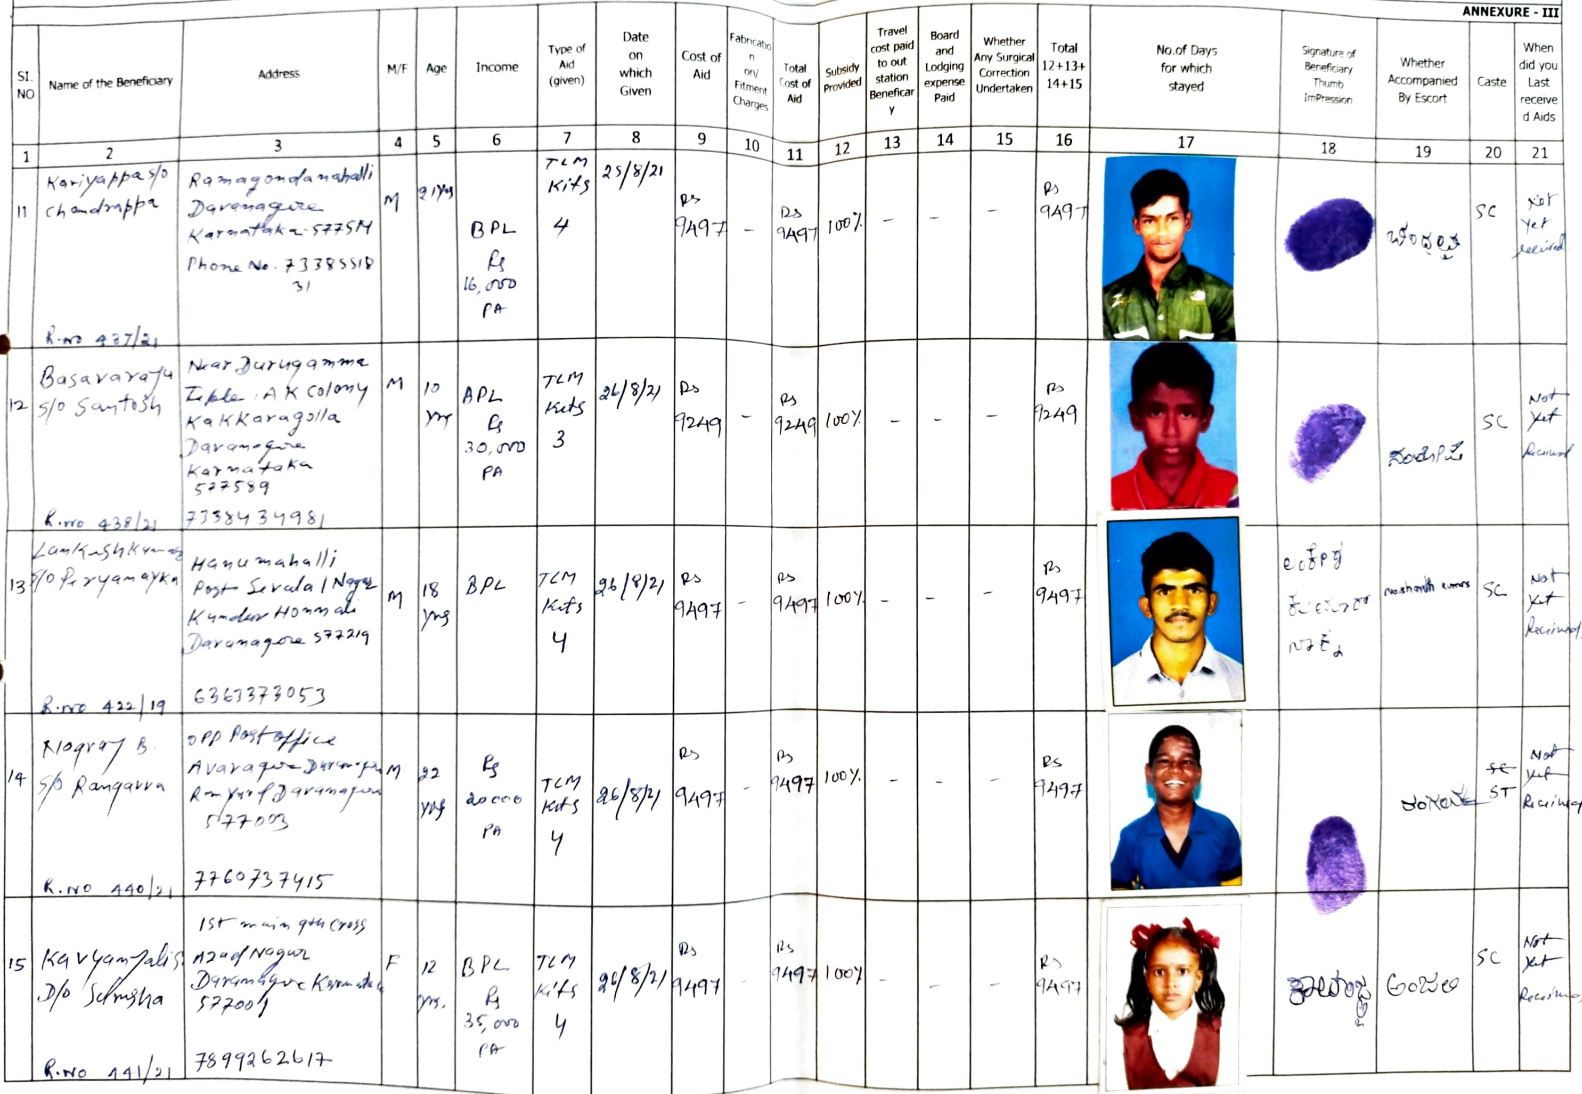 ANNEXURE - III
SI. NO
Name of the Beneficiary
Address
M/F
Age
Income
Type of Aid (given)
Date on which Given
Cost of Aid
Fabricatio n on/ Fitment Charges
Total Cost of Aid
Subsidy Provided
Travel cost paid to out station Beneficar y
Board and Lodging expense Paid
Whether Any Surgical Correction Undertaken
Total 12+13+ 14+15
No.of Days for which stayed
Signature of Beneficiary Thumb ImPression
Whether Accompanied By Escort
Caste
When did you Last receive d Aids
1 2 3 4 5 6 7 8 9 10 11 12 13 14 15 16 17 18 19 20 21
11
Kariyappa s/o
Chandrappa
R.no 437/21
Ramagondanahalli
Davanagire
Karnataka
Phone No. 73385518
31
M
21 yrs
BPL
Rs
16,000
PA
TLM
Kits
4
25/8/21
Rs
9497
-
Rs
9497
100%
-
-
-
Rs
9497
SC
Not
Yet
received
12
Basavaraju
S/o Santosh
R.no 438/21
Near Durugamma
A K Colony
Kakkaragolla
Davanagire
Karnataka
577589
7338434981
M
10
yrs
BPL
Rs
30,000
PA
TLM
Kits
3
26/8/21
Rs
9249
-
Rs
9249
100%
-
-
-
Rs
9249
SC
Not
Yet
Received
13
Lankesh Kumar
R.no 422/19
Hanumahalli
Post Nagar
Honnali
Davanagere 577219
6361373053
M
18
yrs
BPL
TLM
Kits
4
26/8/21
Rs
9497
-
Rs
9497
100%
-
-
-
Rs
9497
SC
Not
Yet
Received
14
Nagraj B.
S/o Rangavva
R.no 440/21
OPP Post office
Avaragere
Davanagere
577003
7760737415
M
22
yrs
Rs
20000
PA
TLM
Kits
4
26/8/21
Rs
9497
-
Rs
9497
100%
-
-
-
Rs
9497
SC
ST
Not
Yet
Received
15
Kavyanjali S.
D/o
R.no 441/21
1st main 9th cross
Azad Nagar
Davanagere Karnataka
577001
7899262617
F
12
yrs.
BPL
Rs
35,000
PA
TLM
Kits
4
26/8/21
Rs
9497
-
Rs
9497
100%
-
-
-
Rs
9497
ಅಂಜಲಿ
SC
Not
Yet
Received